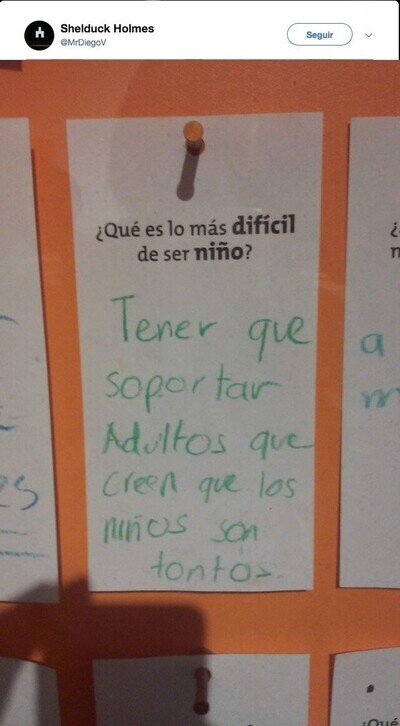 Shelduck Holmes
@MrDiegoV
Seguir
¿Qué es lo más difícil
de ser niño?
Tener que
soportar
Adultos que
creen que los
niños son
tontos.
a